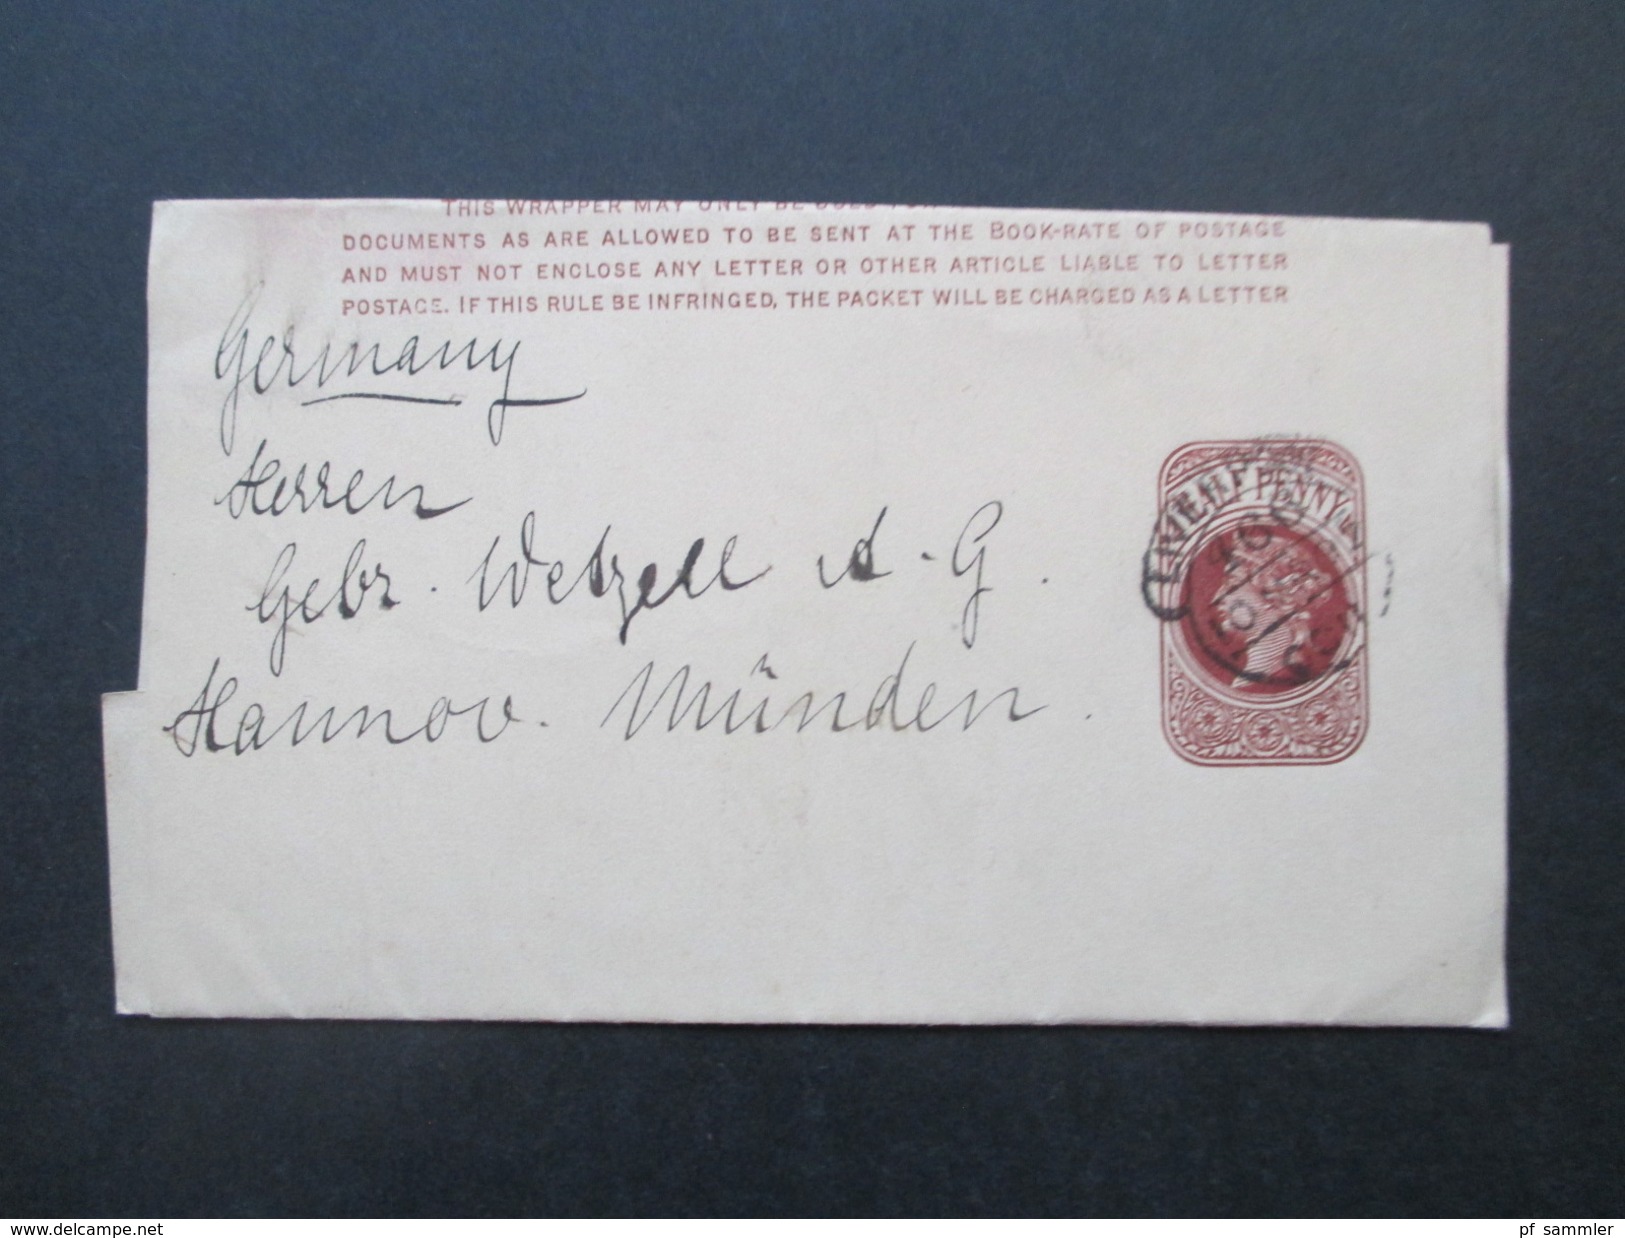 THIS WRAPPER MAY ONLY BE USED FOR
DOCUMENTS AS ARE ALLOWED TO BE SENT AT THE BOOK-RATE OF POSTAGE
AND MUST NOT ENCLOSE ANY LETTER OR OTHER ARTICLE LIABLE TO LETTER
POSTAGE. IF THIS RULE BE INFRINGED, THE PACKET WILL BE CHARGED AS A LETTER
Germany
Herren
Gebr. Wetzell A.-G.
Hannov. Münden.
HALF PENNY
www.delcampe.net
pf_sammler